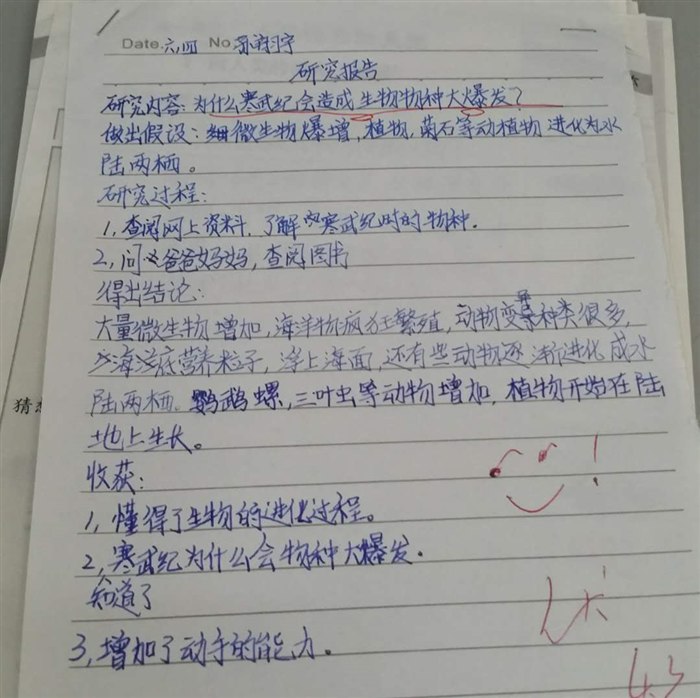 Date. 六.四 No. 孙翊宇
研究报告
研究内容:为什么寒武纪会造成生物物种大爆发?
做出假设:微生物爆增,植物,菊石等动植物进化为水
陆两栖。
研究过程:
1,查阅网上资料.了解寒武纪时的物种.
2,问爸爸妈妈,查阅图书
得出结论:
大量微生物增加,海洋物疯狂繁殖,动物变异种类很多,
海洋底营养粒子,浮上海面,还有些动物逐渐进化成水
陆两栖。鹦鹉螺,三叶虫等动物增加,植物开始在陆
地上生长。
猜想
收获:
1,懂得了生物的进化过程。
2,寒武纪为什么会物种大爆发.
知道了
3,增加了动手的能力.
优
4.3